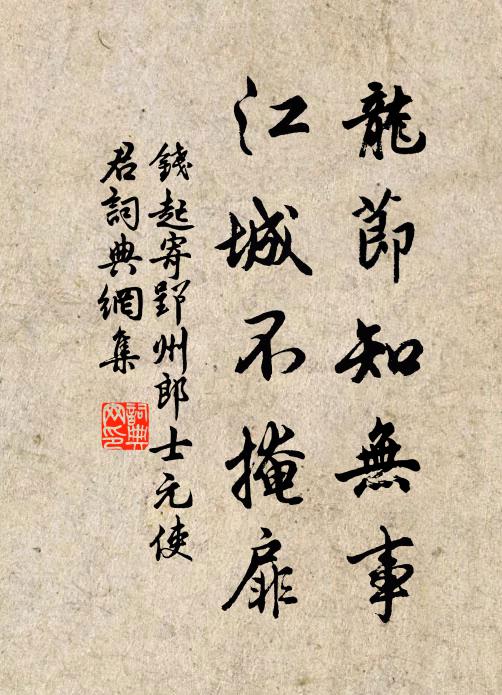 龍節知無事
江城不掩扉
錢起寄郢州郎士元使
君詞典網集
詞典網印